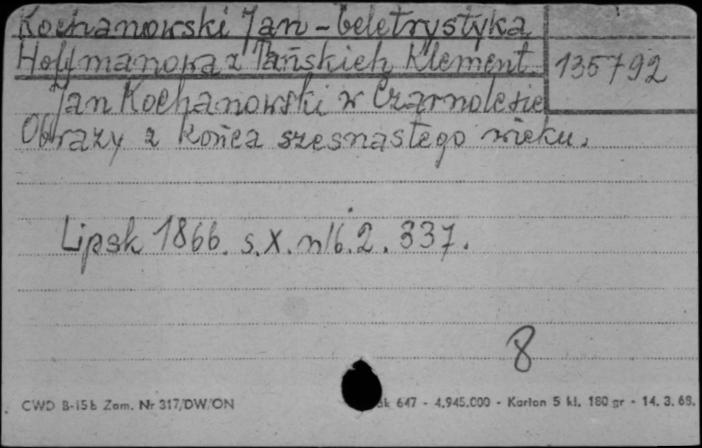 Kochanowski Jan - beletrystyka
Hoffmanowa z Tańskich Klement.
135792
Jan Kochanowski w Czarnolesie
Obrazy z końca szesnastego wieku.
Lipsk 1866. s.X. nlb.2. 337.
8
CWD B-15b Zam. Nr 317/DW/ON
647 - 4.945.000 - Karton 5 kl. 180 gr - 14. 3. 68.